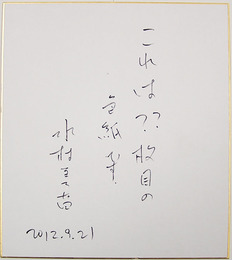 これは??枚目の
色紙です!
水村美苗
2012.9.21